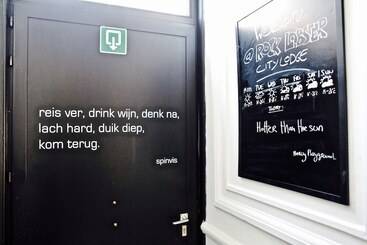 reis ver, drink wijn, denk na,
lach hard, duik diep,
kom terug.
spinvis
CITY LODGE
MON TUE WED THU FRI SAT SUN
TODAY:
Hotter than the sun